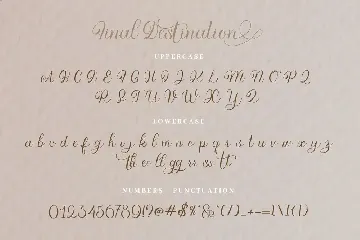 Final Destination
UPPERCASE
A B C D E F G H I J K L M N O P Q
R S T U V W X Y Z
LOWERCASE
a b c d e f g h i j k l m n o p q r s t u v w x y z
th ee ll gg rr ss tt
NUMBERS PUNCTUATION
0123456789!?@#$%&(/)_+-=[\](